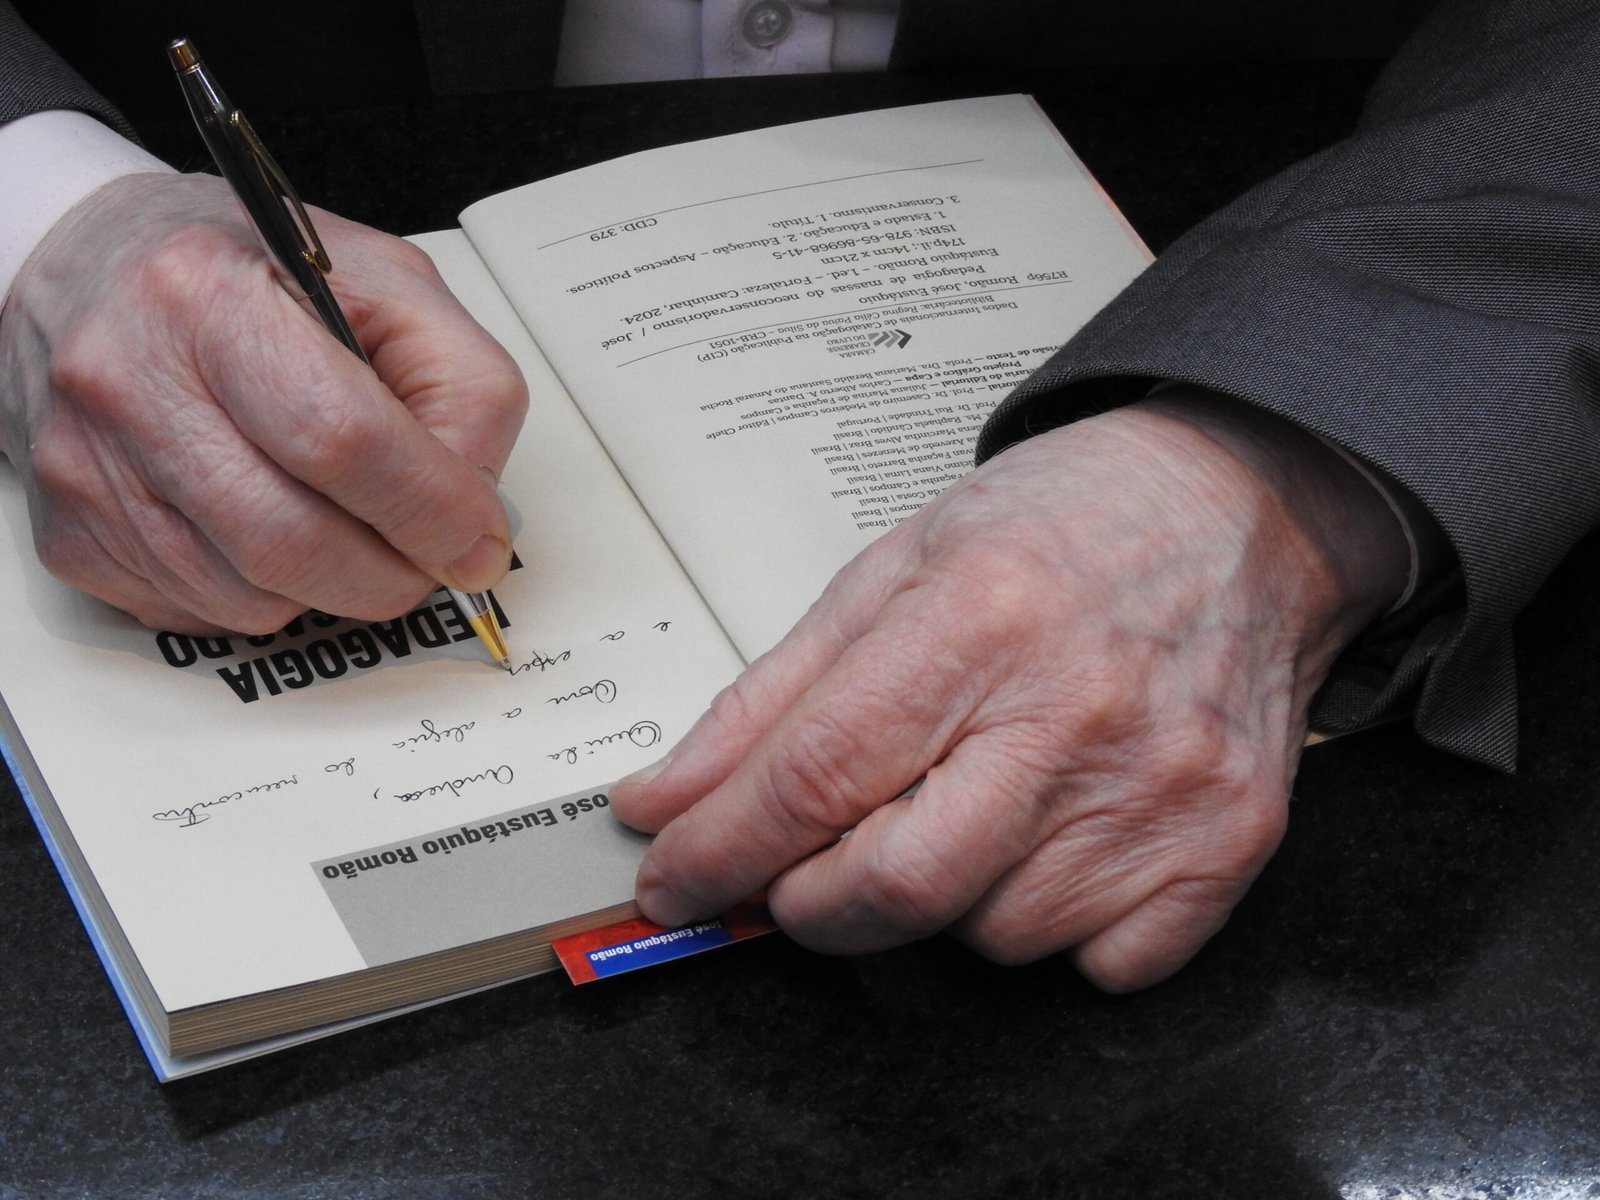 José Eustáquio Romão
Querida Andresa,
Com a alegria do reencontro
e a esper
PEDAGOGIA
DO
Brasil
Campos | Brasil
da Costa | Brasil
Façanha e Campos | Brasil
Viana Lima | Brasil
Façanha Barreto | Brasil
Azevedo de Menezes | Brasil
Marcinha Alves Braz | Brasil
Ms. Raphaela Cândido | Brasil
Prof. Dr. Rui Trindade | Portugal
Prof. Dr. Casemiro de Medeiros Campos | Editor Chefe
Maria do Editorial — Juliana Marina de Façanha e Campos
Projeto Gráfico e Capa — Carlos Alberto A. Dantas
de Texto — Profa. Dra. Mariana Beraldo Santana do Amaral Rocha
CÂMARA
CEARENSE
DO LIVRO
Dados Internacionais de Catalogação na Publicação (CIP)
Bibliotecária: Regina Célia Paiva da Silva – CRB-1051
R756p Romão, José Eustáquio
Pedagogia de massas do neoconservadorismo / José
Eustáquio Romão. – 1.ed. – Fortaleza: Caminhar, 2024.
174p.il.; 14cm x 21cm
ISBN: 978-65-86968-41-5
1. Estado e Educação. 2. Educação – Aspectos Políticos.
3. Conservantismo. I. Título.
CDD: 379
José Eustáquio Romão